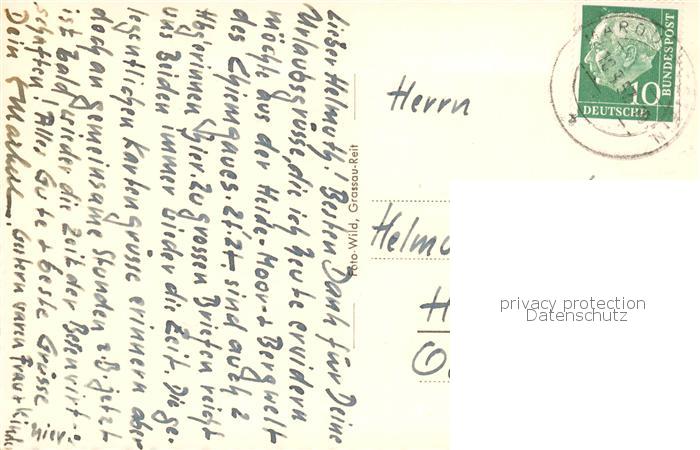 Lieber Helmuth! Besten Dank für Deine
Urlaubsgrüsse, die ich heute erwidern
möchte aus der Heide-Moor-+ Bergwelt
des Chiemgaues. Zt. Zt. sind auch 2
Hagerinnen hier. Zu grossen Briefen reicht
uns beiden immer wieder die Zeit. Die ge-
legentlichen Kartengrüsse erinnern aber
doch an gemeinsame Stunden z.B. jetzt
ist bald wieder die Zeit der Besenwirt-
schaften! Alles Gute + beste Grüsse
Dein
Gestern waren Frau + Kinder
hier.
Foto-Wild, Grassau-Reit
Herrn
Helmu
H
G
10
DEUTSCHE
BUNDESPOST
MARQU
privacy protection
Datenschutz